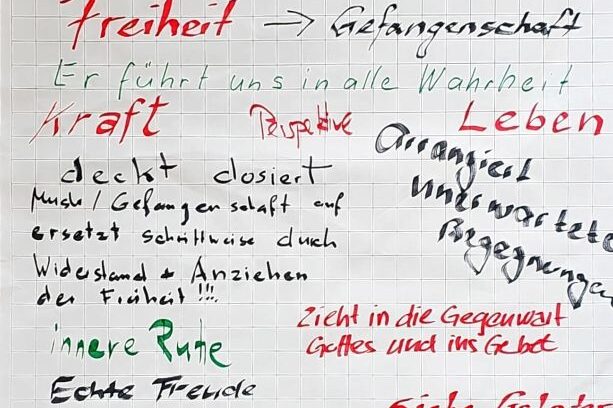 freiheit → Gefangenschaft
Er führt uns in alle Wahrheit
Kraft Perspektive Leben
deckt dosiert
Muster / Gefangenschaft auf
ersetzt schrittweise durch
Widerstand + Anziehen
der Freiheit !!!
Arrangiert
unerwartete
Begegnungen
innere Ruhe
Echte Freude
zieht in die Gegenwart
Gottes und ins Gebet